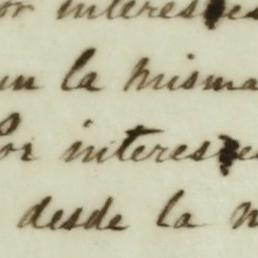 or intereses
un la misma
Por intereses
desde la